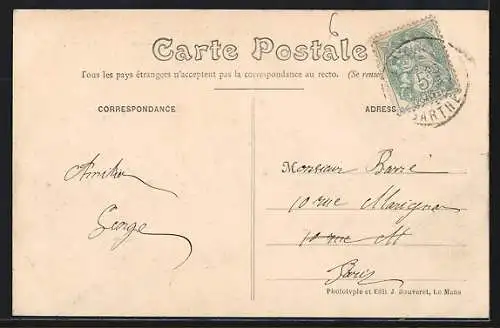 6
Carte Postale
Tous les pays étrangers n'acceptent pas la correspondance au recto. (Se rensei
CORRESPONDANCE
ADRESS
5
SARTHE
Amitiés
George
Monsieur Barré
10 rue Marignan
10 rue M
Paris
Phototypie et Edit. J. Bouveret, Le Mans